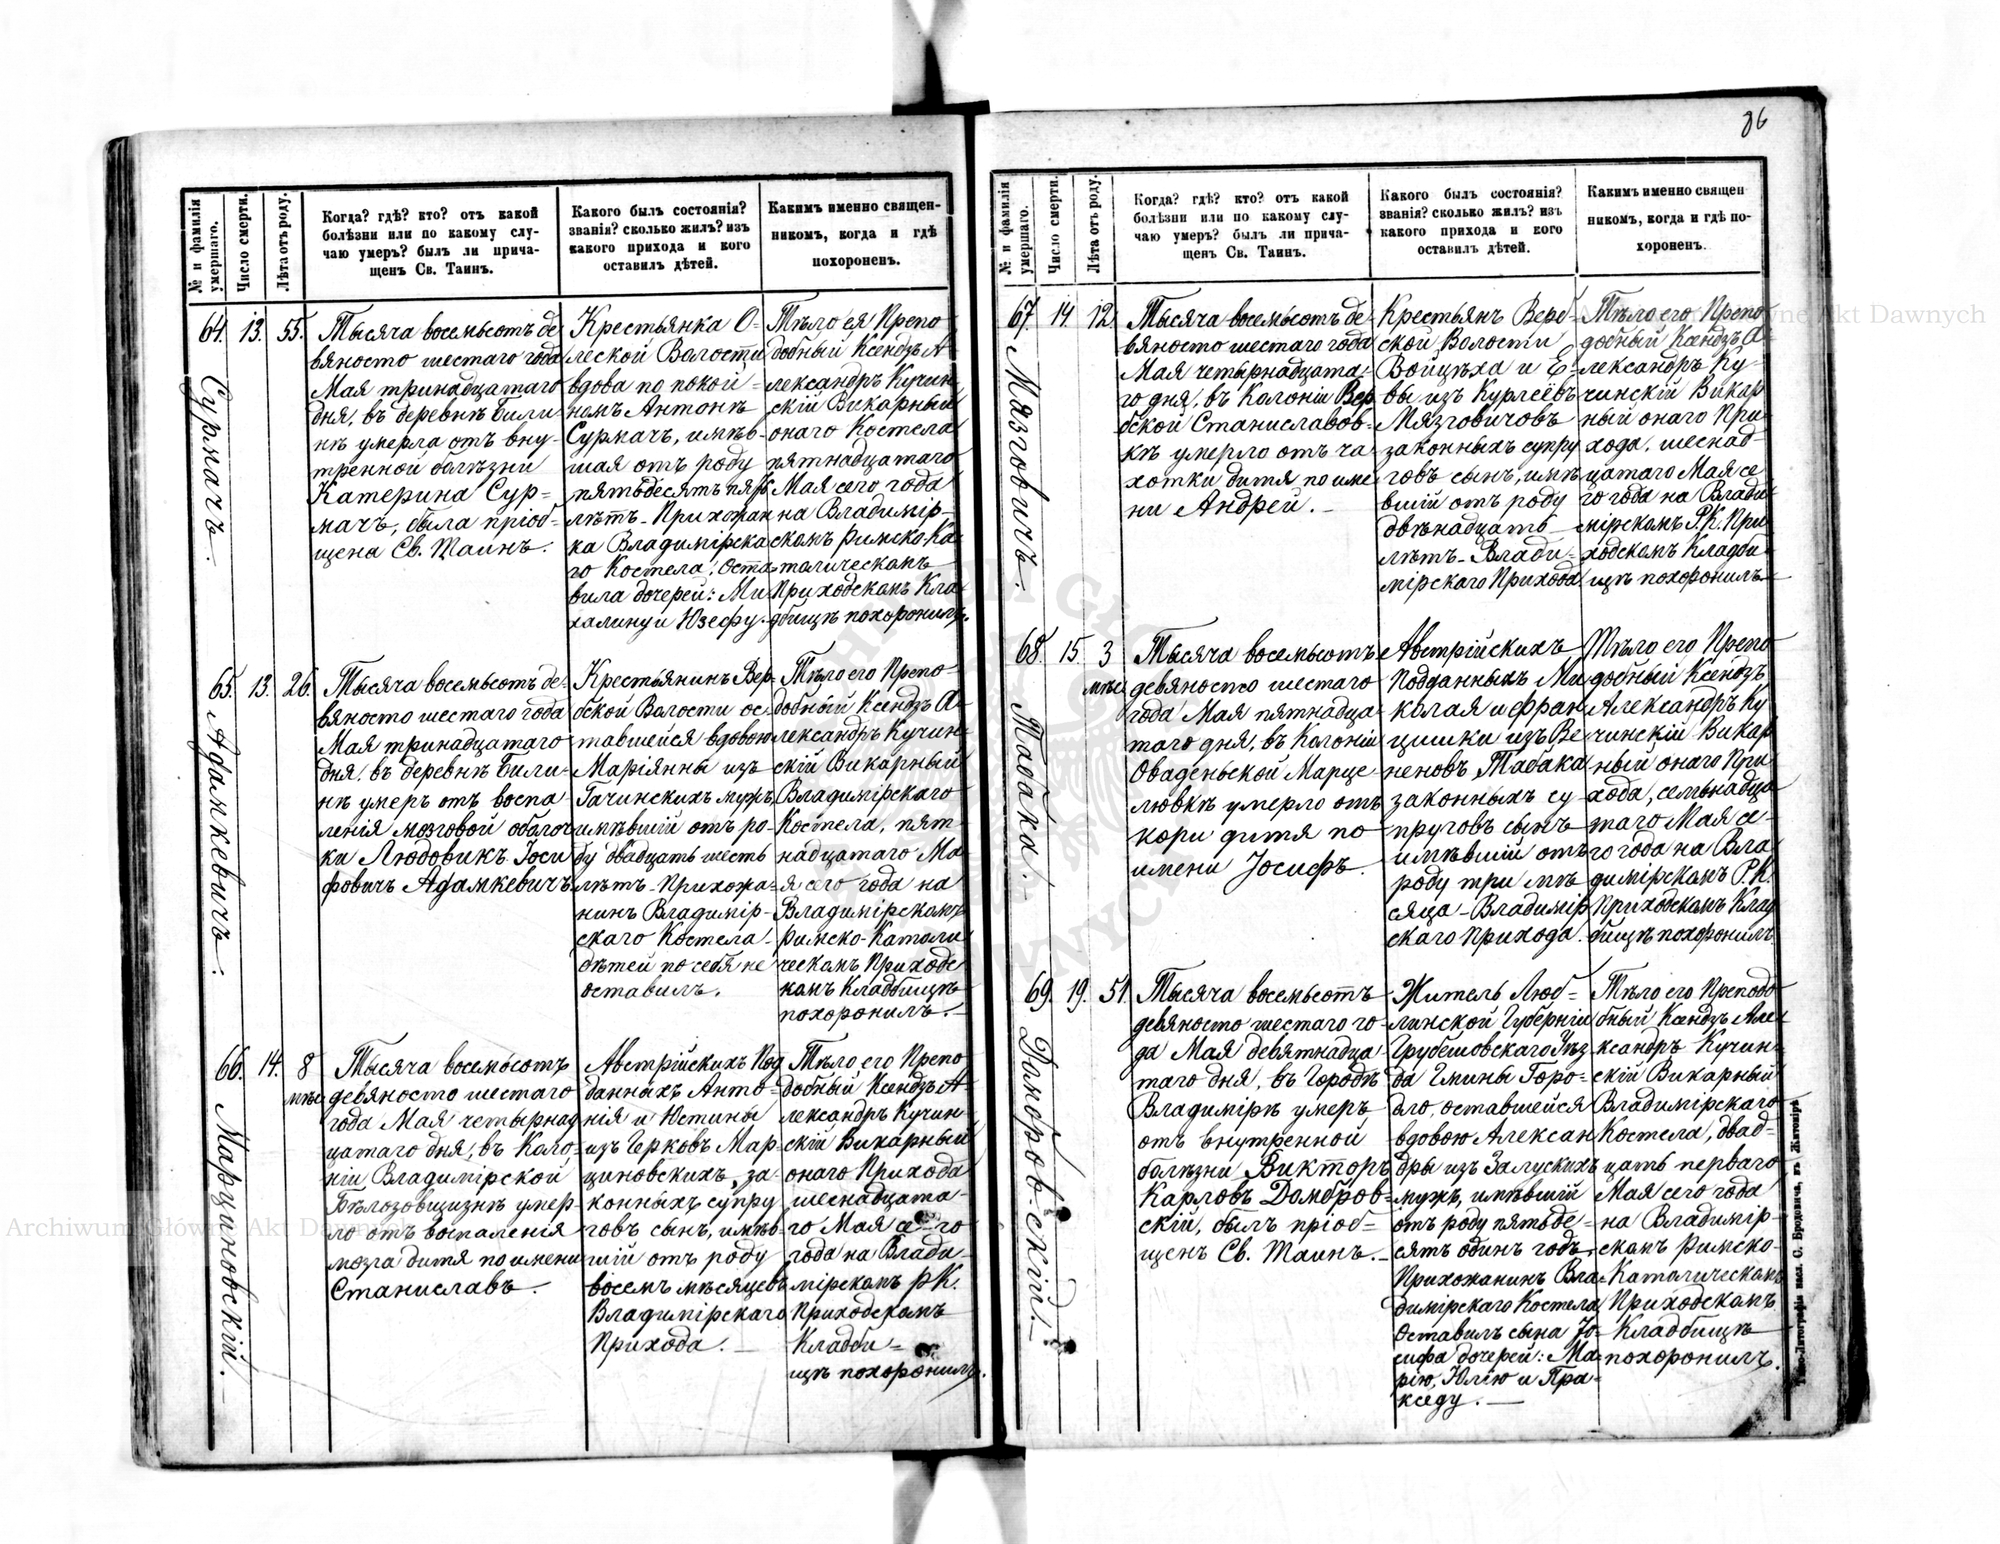 86
№ и фамилія умершаго.
Число смерти.
Лѣта отъ роду.
Когда? гдѣ? кто? отъ какой
болѣзни или по какому слу-
чаю умеръ? былъ ли прича-
щенъ Св. Таинъ.
Какого былъ состоянія?
званія? сколько жилъ? изъ
какого прихода и кого
оставилъ дѣтей.
Какимъ именно священ-
никомъ, когда и гдѣ
похороненъ.
64. 13. 55.
Сурмачъ.
Тысяча восемьсотъ де
вяносто шестаго года
Мая тринадцатаго
дня, въ деревнѣ Били
нѣ умерла отъ вну-
тренной болѣзни
Катерина Сур=
мачъ, была пріоб=
щена Св. Таинъ.
Крестьянка О-
леской Волости
вдова по покой
номъ Антонѣ
Сурмачъ, имѣв-
шая отъ роду
пятьдесятъ пять
лѣтъ - Прихожан
ка Владимірска
го Костела. Оста
вила дочерей: Ми
халину и Юзефу.
Тѣло ея Препо
добный Ксендзъ А
лександръ Кучин
скій Викарный
онаго Костела
пятнадцатаго
Мая сего года
на Владимір-
скомъ Римско-Ка
толическомъ
Приходскомъ Кла
дбищѣ похоронилъ.
65. 13. 26.
Адамкевичъ.
Тысяча восемьсотъ де-
вяносто шестаго года
Мая тринадцатаго
дня, въ деревнѣ Били-
нѣ умеръ отъ воспа
ленія мозговой оболоч
ки Людовикъ Іоси
фовичъ Адамкевичъ
Крестьянинъ Вер-
бской Волости ос-
тавшейся вдовою
Маріянны изъ
Гачинскихъ мужъ,
имѣвшій отъ ро-
ду двадцать шесть
лѣтъ - Прихожа-
нинъ Владимір-
скаго Костела -
дѣтей по себя не
оставилъ.
Тѣло его Препо-
добный Ксендзъ А-
лександръ Кучин-
скій Викарный
Владимірскаго
Костела, пят-
надцатаго Ма-
я сего года на
Владимірскомъ
Римско-Католи
ческомъ Приходс
комъ Кладбищѣ
похоронилъ.
66. 14. 8 мѣс
Марциновскій.
Тысяча восемьсотъ
девяносто шестаго
года Мая четырнад
цатаго дня, въ Коло-
ніи Владимірской
Бѣлозовщизнѣ умер-
ло отъ воспаленія
мозга дитя по имени
Станиславъ.
Австрійскихъ Под
данныхъ Анто-
нія и Юстины
изъ Герковъ Мар-
циновскихъ, за-
конныхъ супру
говъ сынъ, имѣв-
шій отъ роду
восемъ мѣсяцевъ
Владимірскаго
Прихода.
Тѣло его Препо
добный Ксендзъ А-
лександръ Кучин-
скій Викарный
онаго Прихода
шеснадцата-
го Мая сего
года на Влади-
мірскомъ Р.К.
Приходскомъ
Кладби-
щѣ похоронилъ.
№ и фамилія умершаго.
Число смерти.
Лѣта отъ роду.
Когда? гдѣ? кто? отъ какой
болѣзни или по какому слу-
чаю умеръ? былъ ли прича-
щенъ Св. Таинъ.
Какого былъ состоянія?
званія? сколько жилъ? изъ
какого прихода и кого
оставилъ дѣтей.
Какимъ именно священ
никомъ, когда и гдѣ по-
хороненъ.
67. 14. 12.
Мязговичъ.
Тысяча восемьсотъ де-
вяносто шестаго года
Мая четырнадцата-
го дня, въ Колоніи Вер
бской Станиславов-
кѣ умерло отъ ча-
хотки дитя по име
ни Андрей.
Крестьянъ Верб-
ской Волости
Войцѣха и Е-
вы изъ Курлеёвъ
Мязговичовъ
законныхъ супру
говъ сынъ, имѣ
вшій отъ роду
двѣнадцать
лѣтъ - Влади-
мірскаго Прихода
Тѣло его Препо
добный Ксендзъ А-
лександръ Ку-
чинскій Викар
ный онаго При
хода, шеснад-
цатаго Мая се
го года на Влади-
мірскомъ Р.К. При
ходскомъ Кладби-
щѣ похоронилъ
68. 15. 3 мѣс
Табака.
Тысяча восемьсотъ
девяносто шестаго
года Мая пятнадца
таго дня, въ Колоніи
Оваденьской Марце
любкѣ умерло отъ
кори дитя по
имени Іосифъ.
Австрійскихъ
Подданныхъ Ми
колая и Фран
цишки изъ Ве
неновъ Табака
законныхъ су-
пруговъ сынъ
имѣвшій отъ
роду три мѣ
сяца - Владимір
скаго Прихода.
Тѣло его Препо
добный Ксендзъ
Александръ Ку
чинскій Викар
ный онаго При
хода, семьнадца
таго Мая се-
го года на Вла
димірскомъ Р.К.
Приходскомъ Клад
бищѣ похоронилъ
69. 19. 51.
Домбровскій.
Тысяча восемьсотъ
девяносто шестаго го-
да Мая девятнадца
таго дня, въ Городѣ
Владимірѣ умеръ
отъ внутренной
болѣзни Викторъ
Карловъ Домбров=
скій, былъ пріоб=
щенъ Св. Таинъ.
Житель Люб=
линской Губерніи
Грубешовскаго Уѣз
да Гмины Горо-
дло, оставшейся
вдовою Алексан
дры изъ Залускихъ
мужъ, имѣвшій
отъ роду пятьде-
сятъ одинъ годъ.
Прихожанинъ Вла-
димірскаго Костела
Оставилъ сына Іо-
сифа дочерей: Ма-
рію, Юлію и Пра-
кседу.
Тѣло его Преподо
бный Ксендзъ Але-
ксандръ Кучин-
скій Викарный
Владимірскаго
Костела, двад-
цать перваго
Мая сего года
на Владимір-
скомъ Римско-
Католическомъ
Приходскомъ
Кладбищѣ
похоронилъ.
Типо-Литографія насл. С. Бродовича, въ Житомірѣ
Archiwum Główne Akt Dawnych